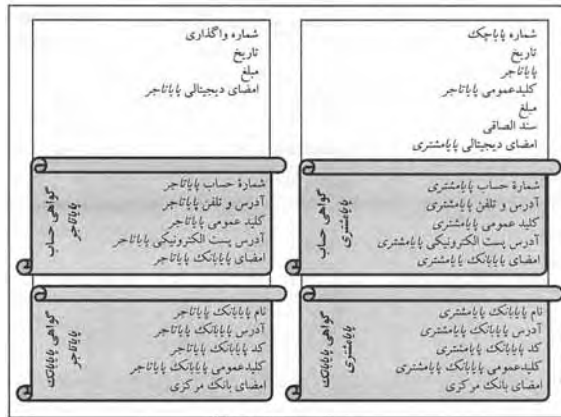 شماره پایاچک
تاریخ
پایاتاجر
کلیدعمومی پایاتاجر
مبلغ
سند الصاقی
امضای دیجیتالی پایامشتری
گواهی حساب
پایامشتری
شمارۀ حساب پایامشتری
آدرس و تلفن پایامشتری
کلید عمومی پایامشتری
آدرس پست الکترونیکی پایامشتری
امضای پایابانک پایامشتری
گواهی پایابانک
پایامشتری
نام پایابانک پایامشتری
آدرس پایابانک پایامشتری
کد پایابانک پایامشتری
کلیدعمومی پایابانک پایامشتری
امضای بانک مرکزی
شماره واگذاری
تاریخ
مبلغ
امضای دیجیتالی پایاتاجر
گواهی حساب
پایاتاجر
شمارۀ حساب پایاتاجر
آدرس و تلفن پایاتاجر
کلید عمومی پایاتاجر
آدرس پست الکترونیکی پایاتاجر
امضای پایابانک پایاتاجر
گواهی پایابانک
پایاتاجر
نام پایابانک پایاتاجر
آدرس پایابانک پایاتاجر
کد پایابانک پایاتاجر
کلیدعمومی پایابانک پایاتاجر
امضای بانک مرکزی